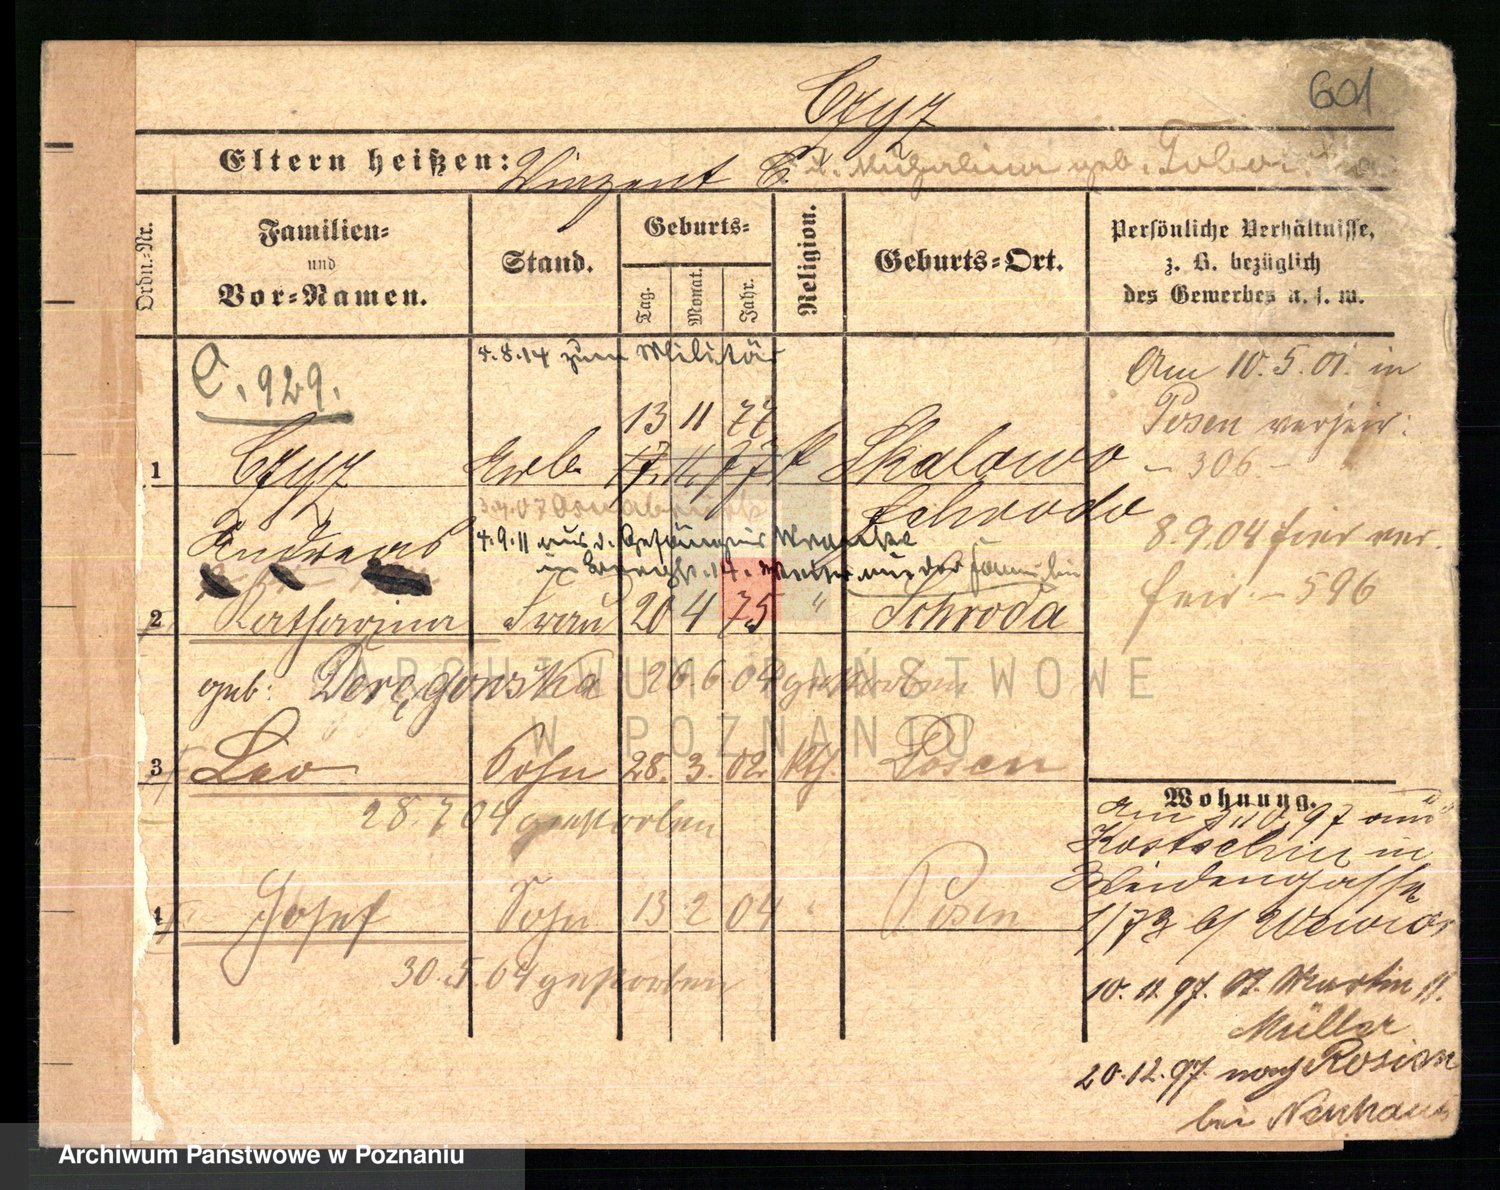 601
Czyż
Eltern heißen: Winzent C. u. geb.
Ordn.-Nr.
Familien-
und
Vor-Namen.
Stand.
Geburts-
Tag.
Monat.
Jahr.
Religion.
Geburts-Ort.
Persönliche Verhältnisse,
z. B. bezüglich
des Gewerbes u. s. w.
4.8.14 zum Militär
C. 929.
Am 10.5.01. in
Posen verheir.
- 306 -
13 11 77
1 Czyż Arb. 17. 11. 77 k Skalowo
Schroda
Andreas
4.9.11 aus d. Gefängnis Wronke
8.9.04 hier ver-
heir. - 596
2 Katharina Frau 20 4 75 " Schroda
geb: Doręgowska 26 6 04 gestorben
3 Leo Sohn 28. 3. 02. kth. Posen
28.7.04 gestorben
4 Josef Sohn 13 2 04 " Posen
30.5.04 gestorben
Wohnung.
Am 3.10.97 aus
Kostschin in
Weidengasse
1/73 b/
10.11.97. St. Martin
Müller
20.12.97. nach
bei Neuhaus
ARCHIWUM PAŃSTWOWE
W POZNANIU
Archiwum Państwowe w Poznaniu